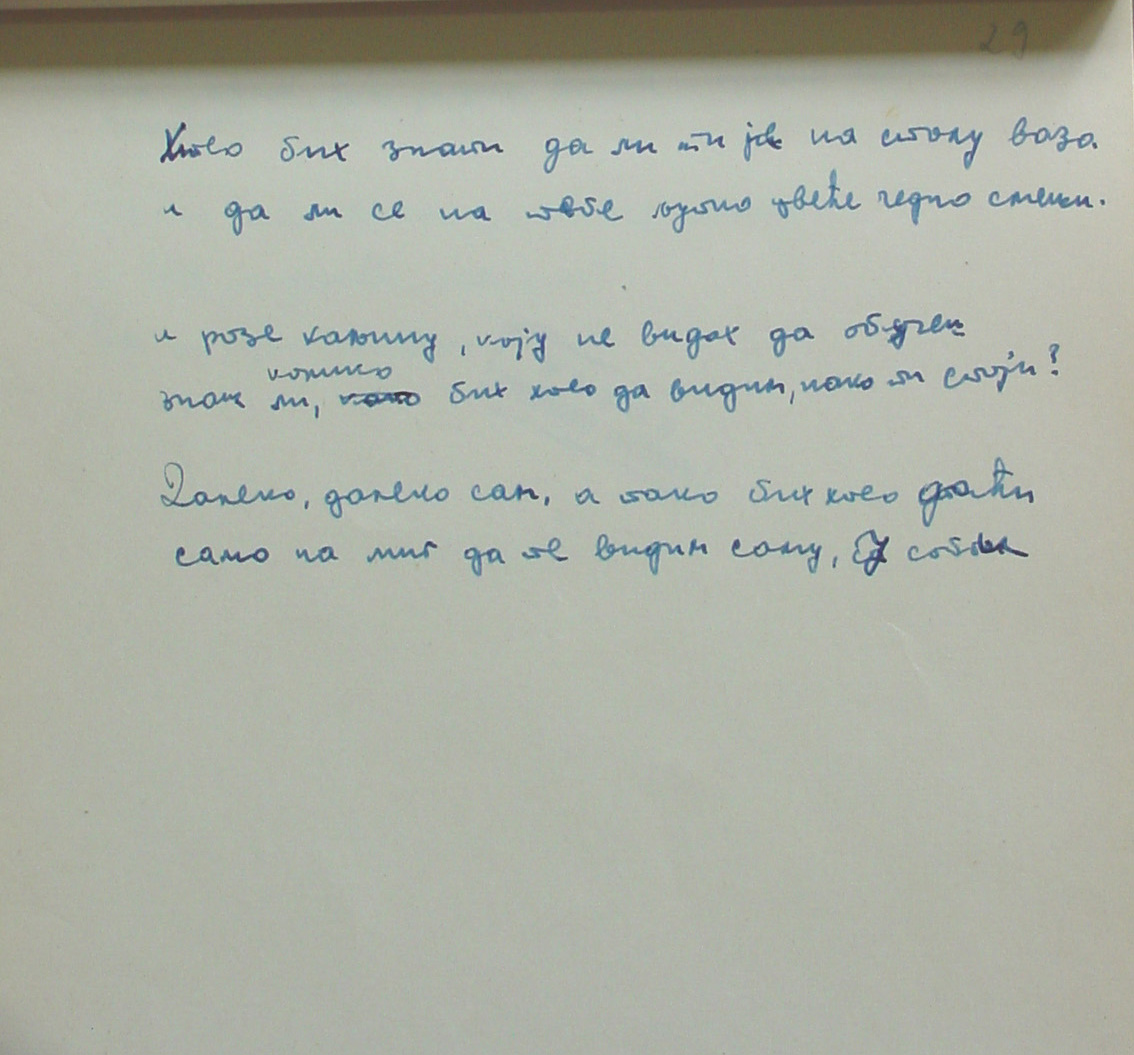 29
Хтео бих знати да ли ти је на столу ваза
и да ли се на тебе љутно цвеће чедно смеши.
и розе хаљину, коју не видох да обучеш
колико
знаш ли, како бих хтео да видим, како ти стоји?
Далеко, далеко сам, а тако бих хтео доћи
само на миг да те видим саму, у собици